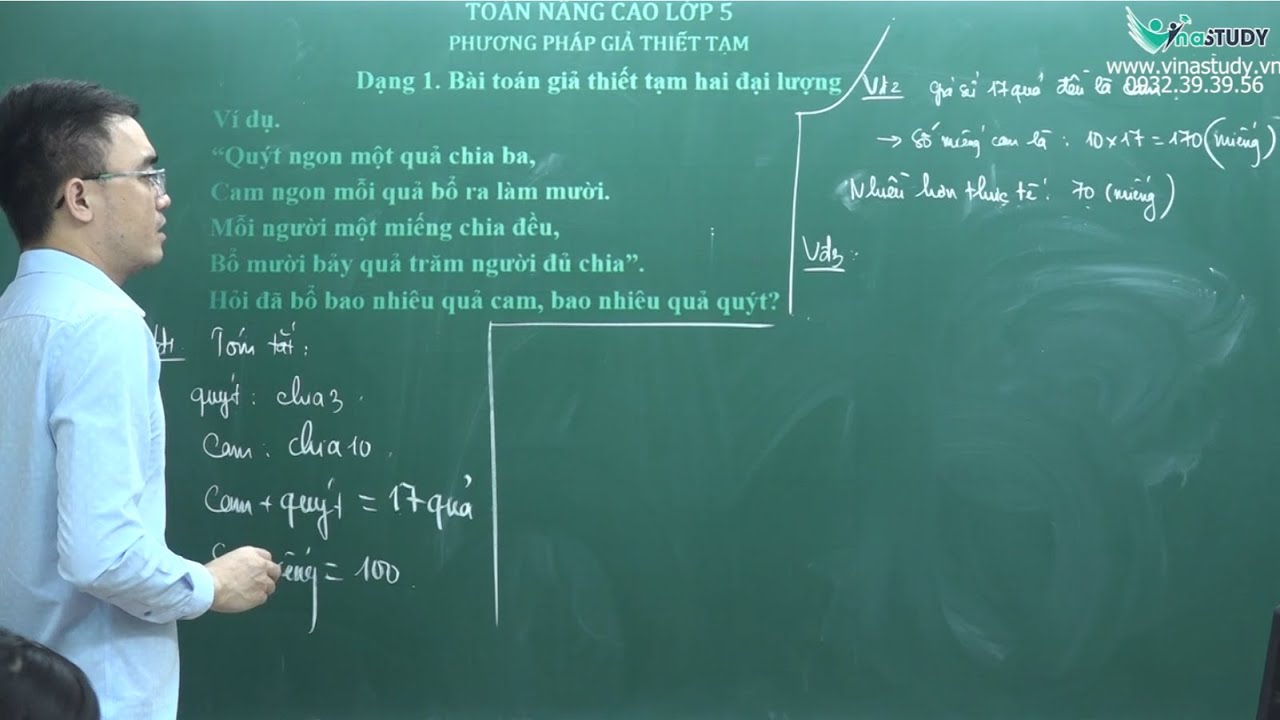 TOÁN NÂNG CAO LỚP 5
PHƯƠNG PHÁP GIẢ THIẾT TẠM
Dạng 1. Bài toán giả thiết tạm hai đại lượng
Ví dụ.
“Quýt ngon một quả chia ba,
Cam ngon mỗi quả bổ ra làm mười.
Mỗi người một miếng chia đều,
Bổ mười bảy quả trăm người đủ chia”.
Hỏi đã bổ bao nhiêu quả cam, bao nhiêu quả quýt?
Tóm tắt:
quýt: chia 3.
Cam: chia 10.
Cam + quýt = 17 quả
= 100
giả sử 17 quả đều là cam.
→ Số miếng cam là: 10 × 17 = 170 (miếng)
Nhiều hơn thực tế: 70 (miếng)
Vd3:
VinaSTUDY
www.vinastudy.vn
0932.39.39.56